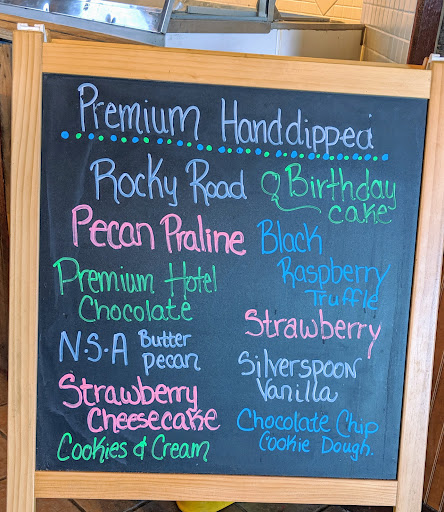 Premium Handdipped
Rocky Road
Birthday
cake
Pecan Praline
Black
Raspberry
Truffle
Premium Hotel
Chocolate
Strawberry
N.S.A Butter
pecan
Silverspoon
Vanilla
Strawberry
Cheesecake
Chocolate Chip
Cookie Dough.
Cookies & Cream